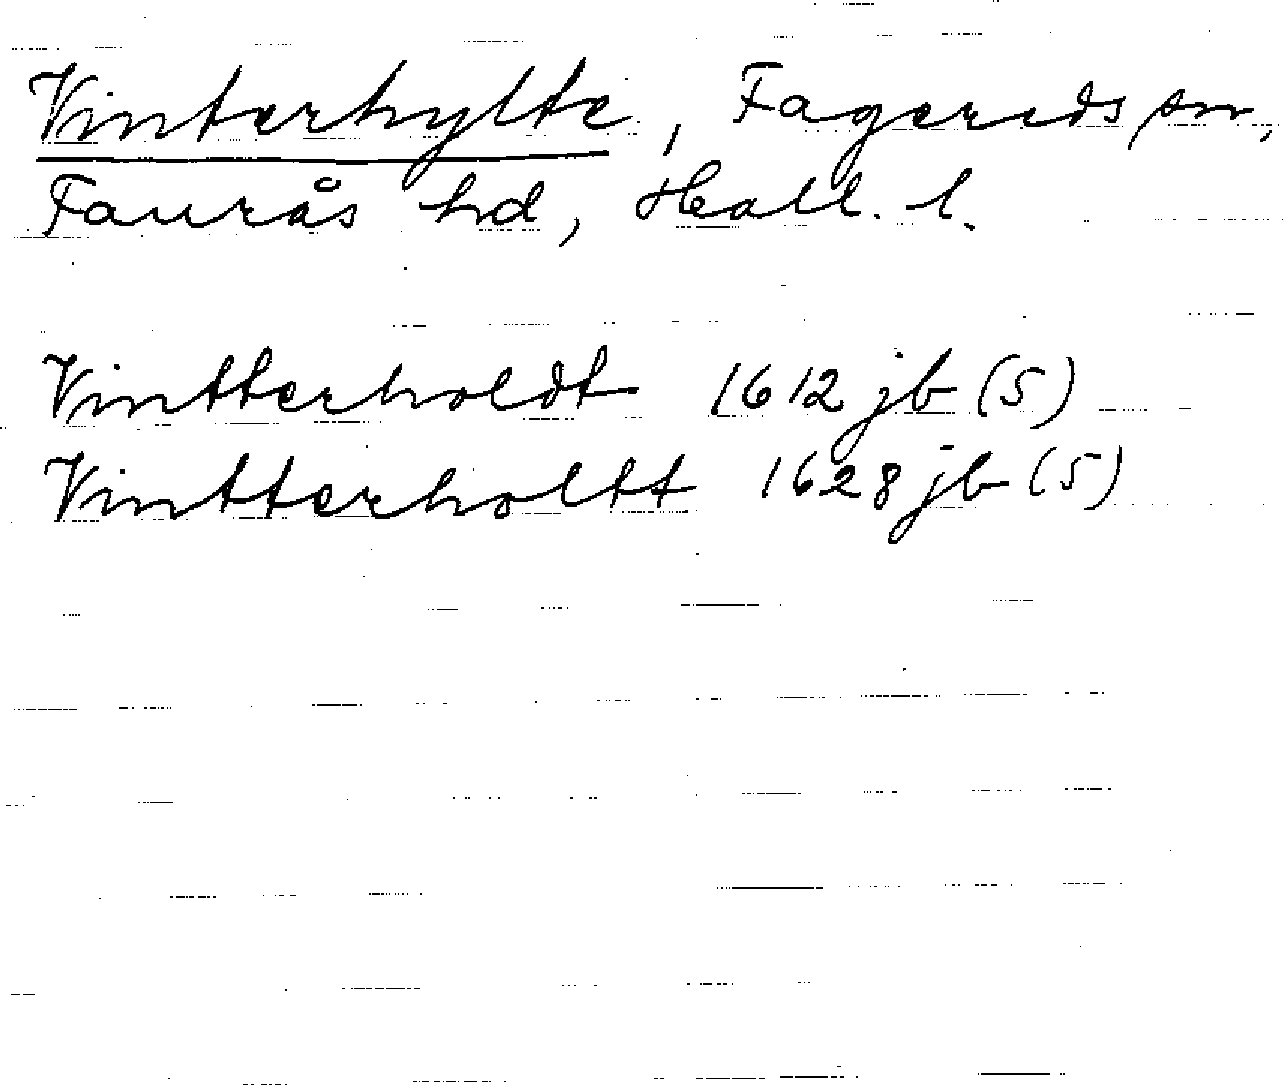 Vinterhylte, Fagereds sn,
Faurås hd, Hall. l.
Vintterholdt 1612 jb (S)
Vintterholtt 1628 jb (S)